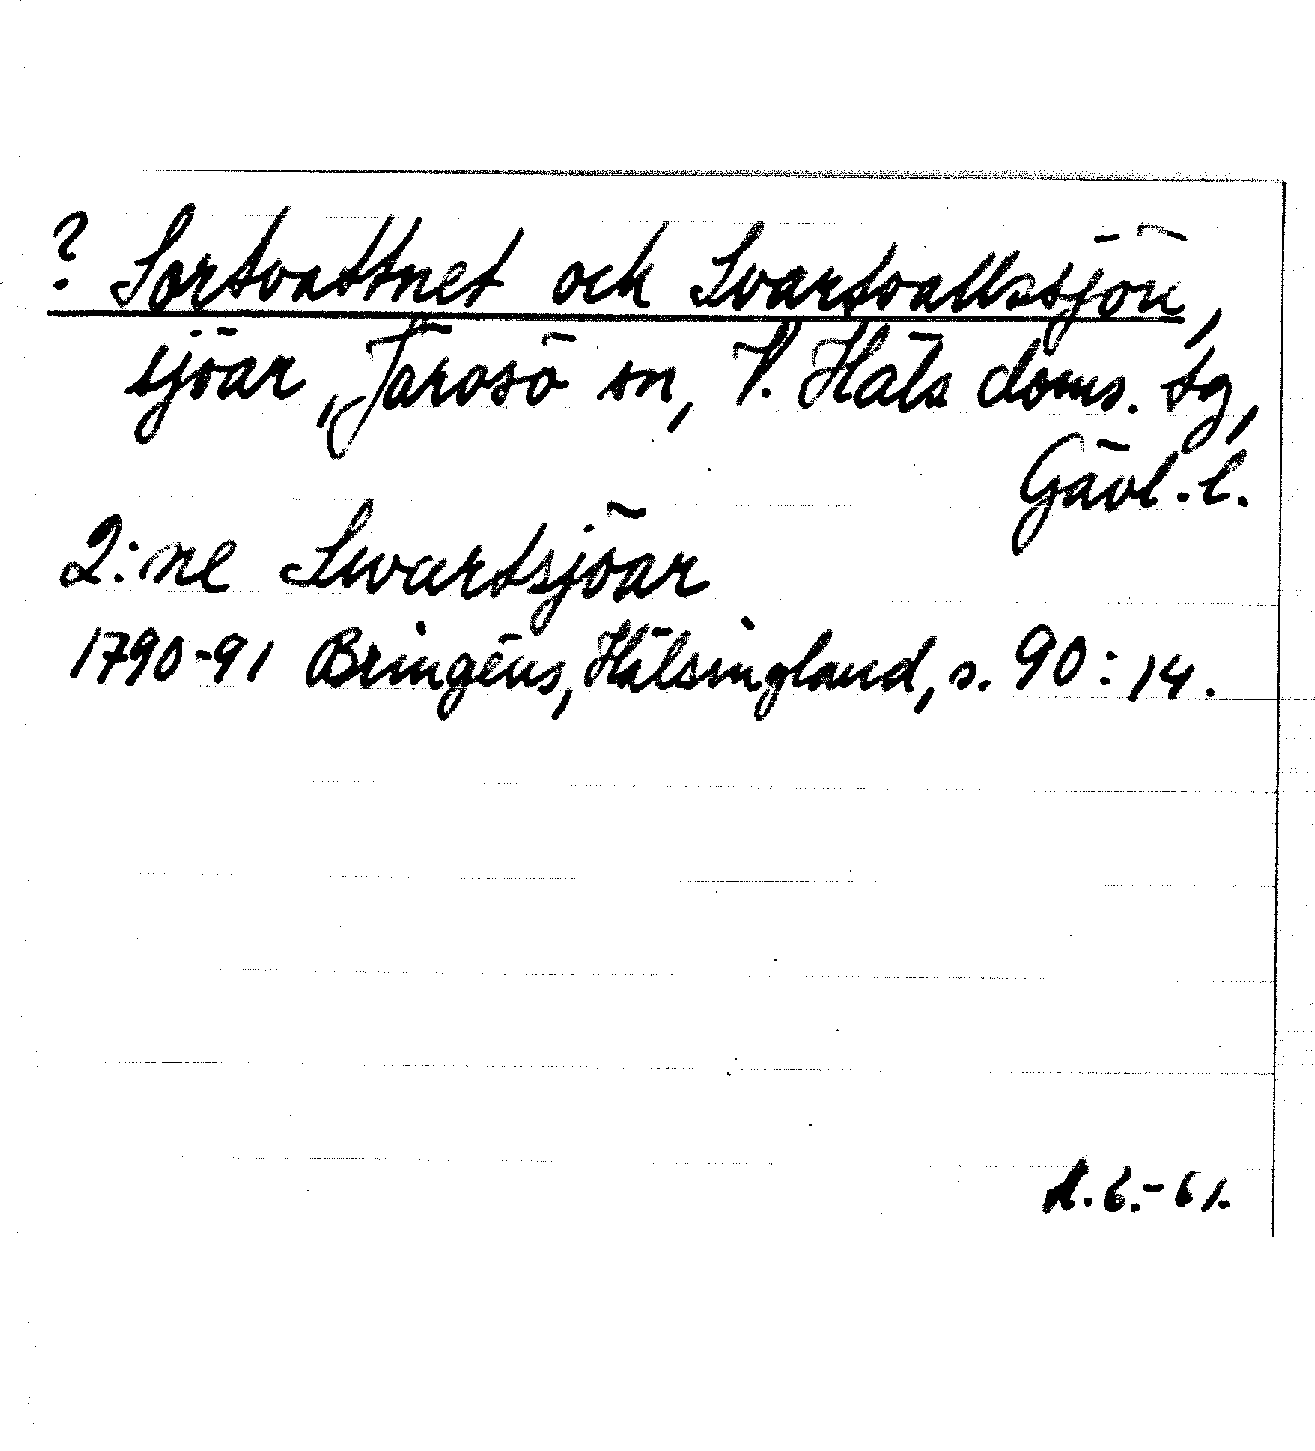 ? Sortvattnet och Svartvallssjön,
sjöar, Järvsö sn, V. Häls doms. sg,
Gävl. l.
2:ne Swartsjöar
1790-91 Bringéus, Hälsingland, s. 90:14.
6.-61.